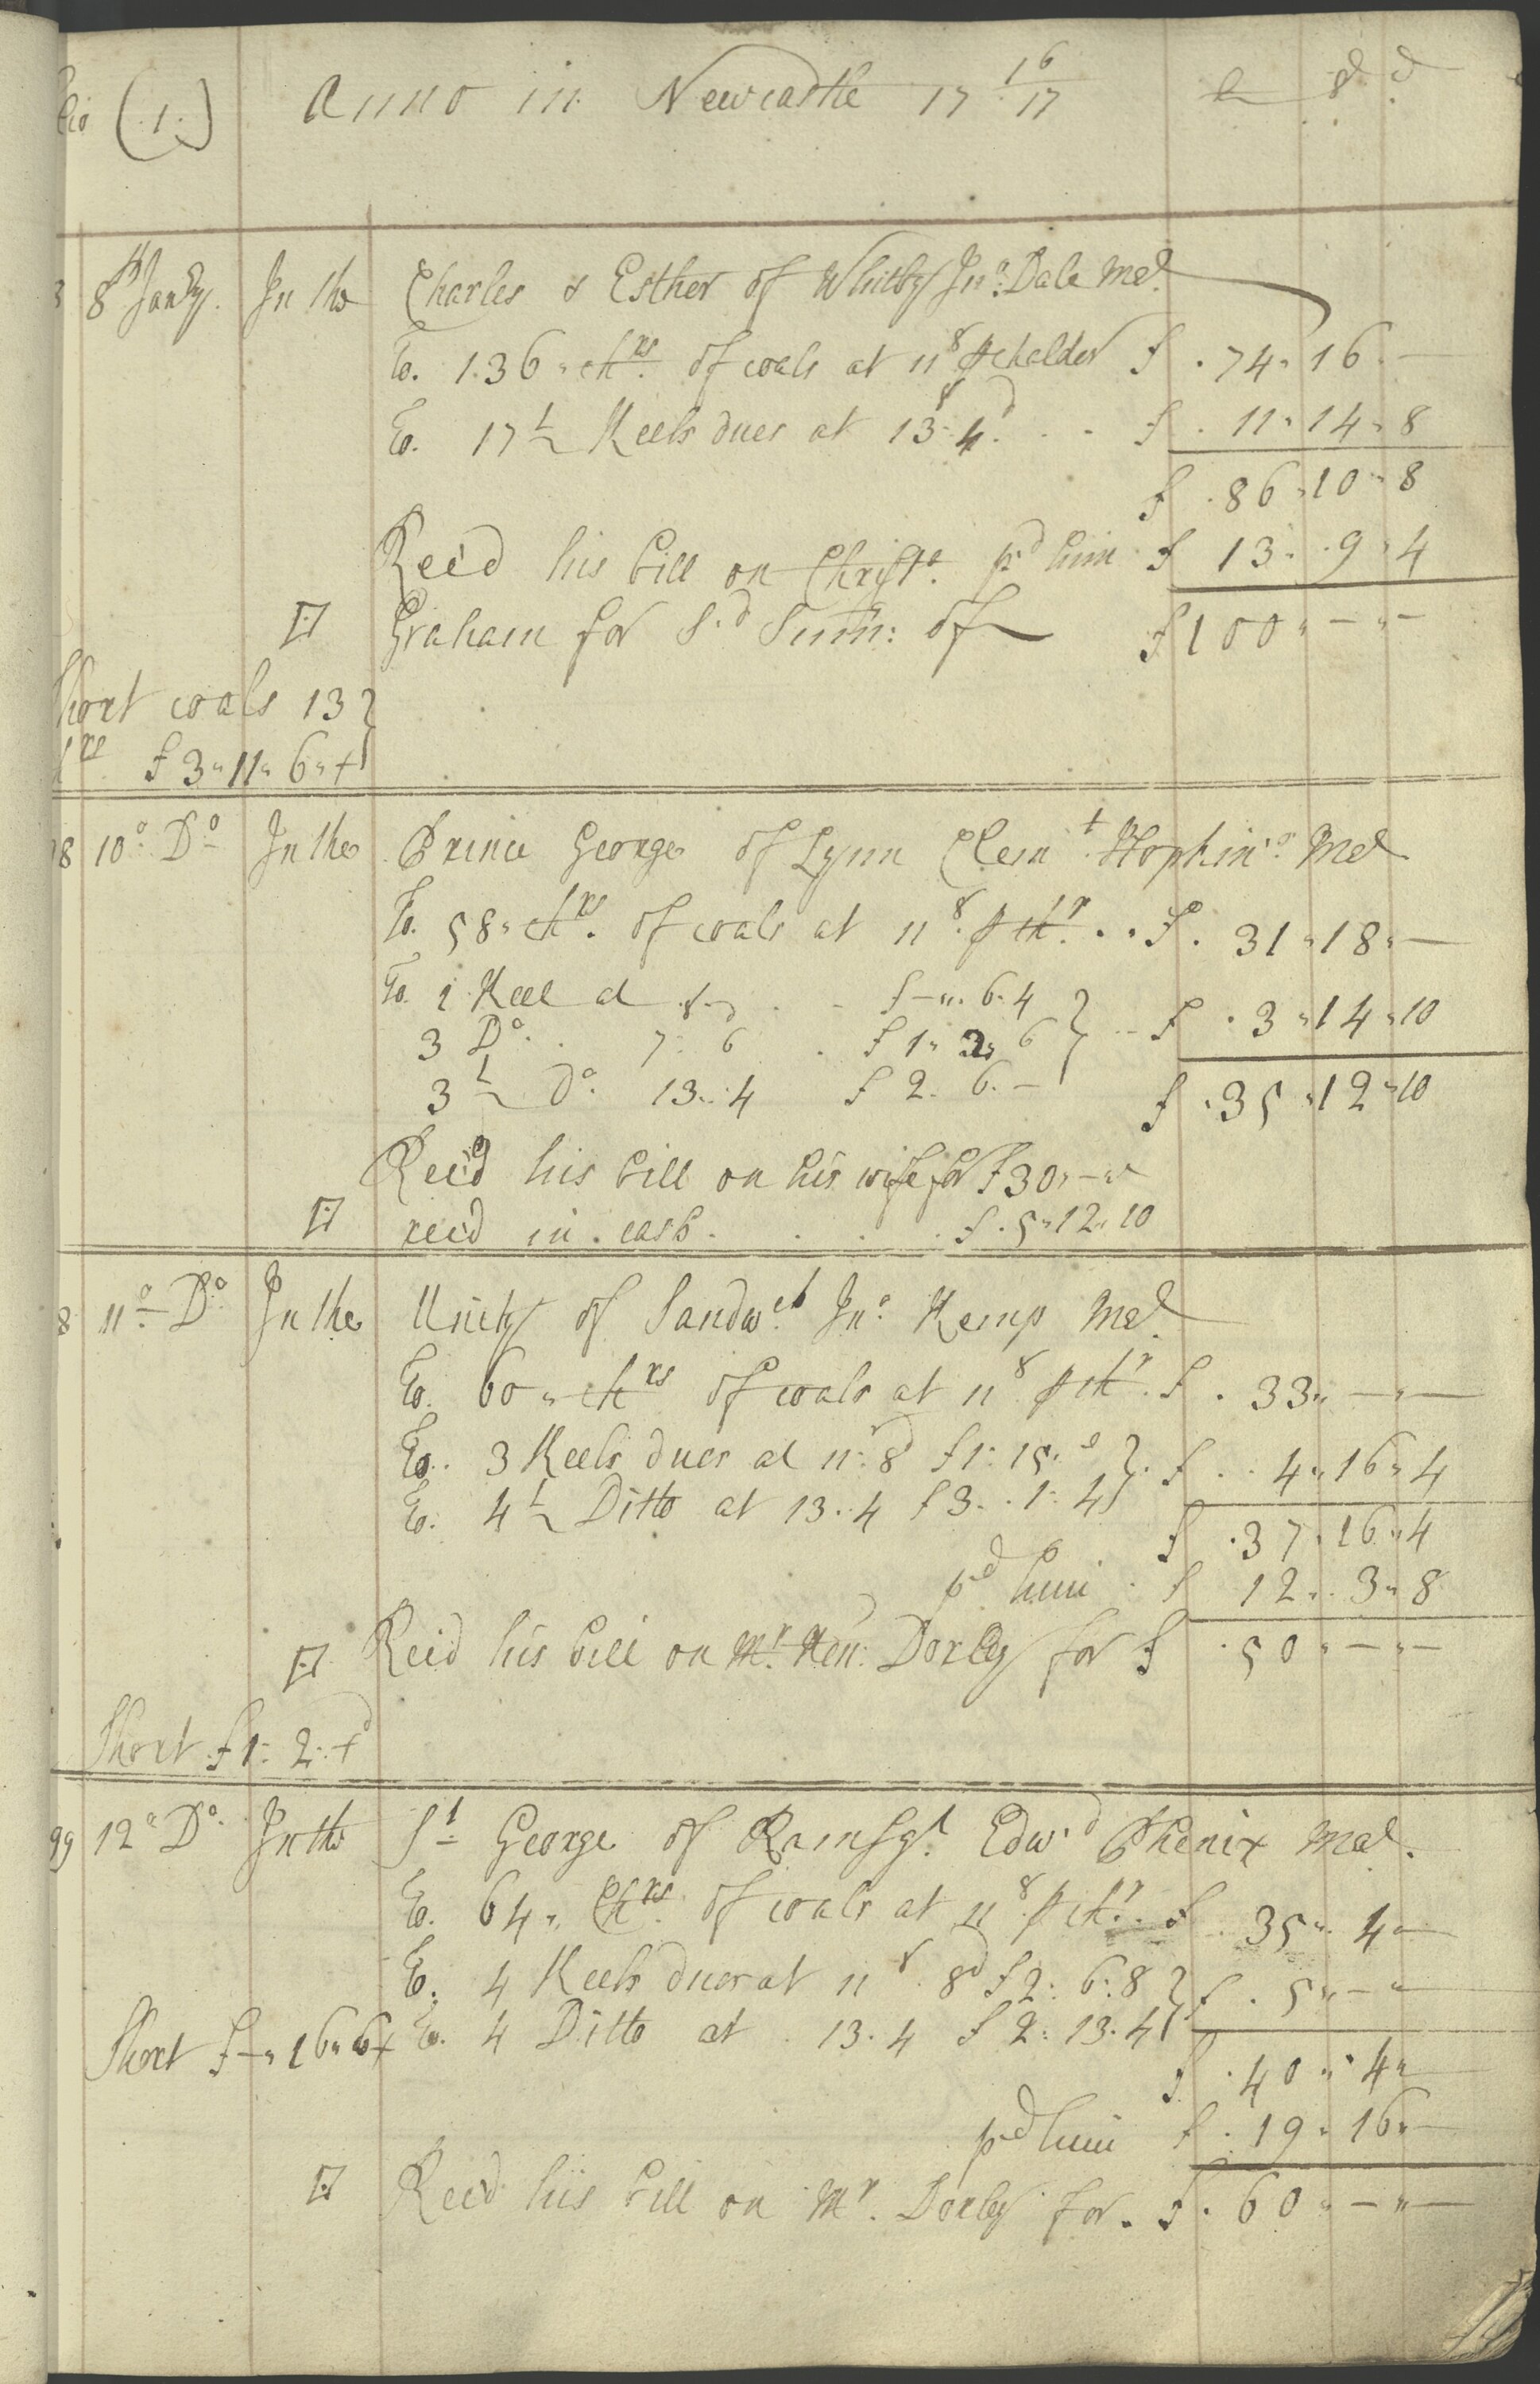 (1.) Anno in Newcastle 17 16/17 s d
8th Janry. In the Charles & Esther of Whitby Jno: Dale Mr
To. 136 " chrs. of coals at 11s p chalder £ . 74 " 16 " —
To. 17½ Keels dues at 13s 4d . . - £ . 11 " 14 " 8
£ . 86 " 10 " 8
Rec'd his bill on Christo. pd him £ 13 " . 9 " 4
Graham for sd. Sum: of £ 100 " — " —
Short coals 13
£ 3 " 11 " 6 " +
10o. Do In the Prince George of Lynn Clemt. Hopkin Mr
To. 58 " chrs. of coals at 11s. p chr. . . £ . 31 " 18 " —
To. 1 Keel at . . - £ — " . 6 . 4
3 Do. . 7 : 6 . £ 1 " 2 " 6 } - - £ . 3 " 14 " 10
3½ do. 13 . . 4 £ 2 . 6 . —
£ . 35 " 12 " 10
Rec'd his bill on his wife for £ 30 " — "
rec'd in . cash . . . . . £ . 5 " 12 " 10
11o. Do. In the Unity of Sandwch. Jno: Kemp Mr.
To. 60 " chrs of coals at 11s p chr. £ . 33 " — " —
To. . 3 Keels dues at 11 : 8d £ 1 : 15 . o } . £ . . 4 " 16 " 4
To. 4½ Ditto at 13 . . 4 £ 3 . . 1 : 4
£ . 37 " 16 " 4
pd him . £ 12 " . 3 " 8
Rec'd his bill on Mr. Hen: Dorley for £ . 50 " — " —
Short £ 1 : 2 : +
12o Do. In the St George of Ramsgt. Edwd Phenix Mr.
To. 64 " Chrs. of coals at 11s. p chr. . £ . 35 " . 4 " —
To. 4 Keels dues at 11s . 8d £ 2 : 6 : 8 } £ . 5 " — "
Short £ — " 16 " 6 + To. 4 Ditto at . 13 . 4 £ 2 : 13 . 4
£ . 40 " . 4 "
pd him £ . 19 " 16 " —
Rec'd his bill on Mr. Dorley for . £ . 60 " — " —